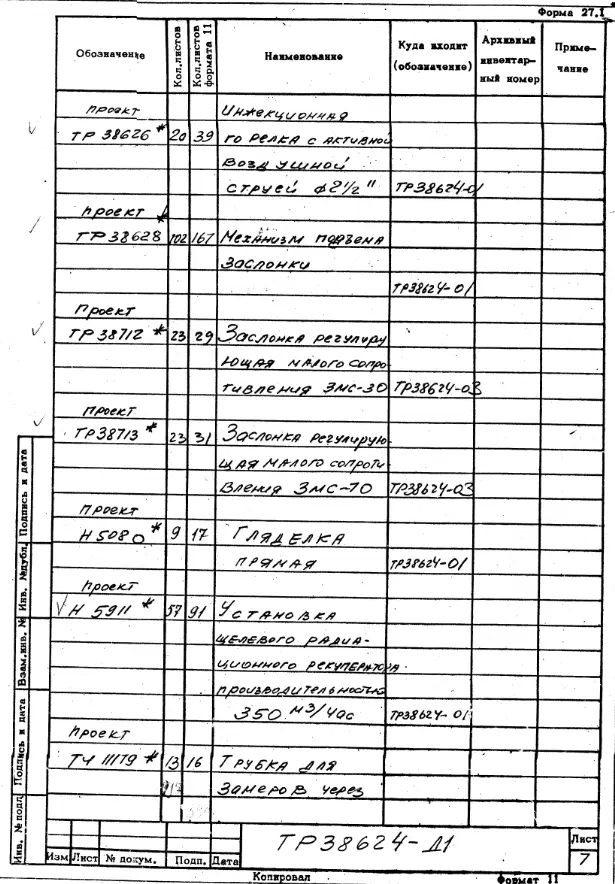 Форма 27.1
Обозначение Кол.листов Кол.листов формата 11 Наименование Куда входит (обозначение) Архивный инвентарный номер Примечание
проект Инжекционная
ТР 38626 * 20 39 горелка с активной
воздушной
струей ф 2½" ТР38624-01
проект
ТР 38628 * 102 167 Механизм подъема
заслонки
ТР38624-01
проект
ТР 38712 * 23 29 Заслонка регулиру
ющая малого сопро-
тивления ЗМС-30 ТР38624-03
проект
ТР38713 * 23 31 Заслонка регулирую-
щая малого сопроти-
вления ЗМС-70 ТР38624-03
проект
Н5080 * 9 17 Гляделка
прямая ТР38624-01
проект
Н 5911 * 57 91 Установка
щелевого радиа-
ционного рекуператора
производительностью
350 м3/час ТР38624-01
проект
ТЧ 11179 * 13 16 Трубка для
замеров через
Подпись и дата
Инв. №дубл.
Взам.инв. №
Подпись и дата
Инв. №подл.
ТР38624-Д1
Лист
7
Изм Лист № докум. Подп. Дата
Копировал Формат 11